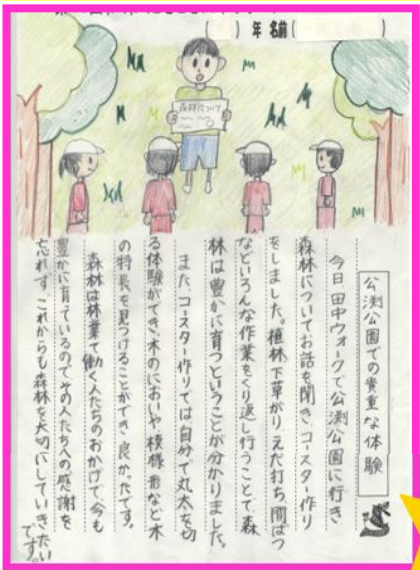 (　　) 年 名前 (　　　)
森林について
公渕公園での貴重な体験
今日、田中ウォークで公渕公園に行き、
森林についてお話を聞き、コースター作り
をしました。植林、下草がり、えだ打ち、間ばつ
などいろんな作業をくり返し行うことで、森
林は豊かに育つということが分かりました。
また、コースター作りでは自分で丸太を切
る体験ができ、木のにおいや模様、形など木
の特長を見つけることができ、良かったです。
森林は林業で働く人たちのおかげで、今も
豊かに育っているので、その人たちへの感謝を
忘れず、これからも森林を大切にしていきたい
です。